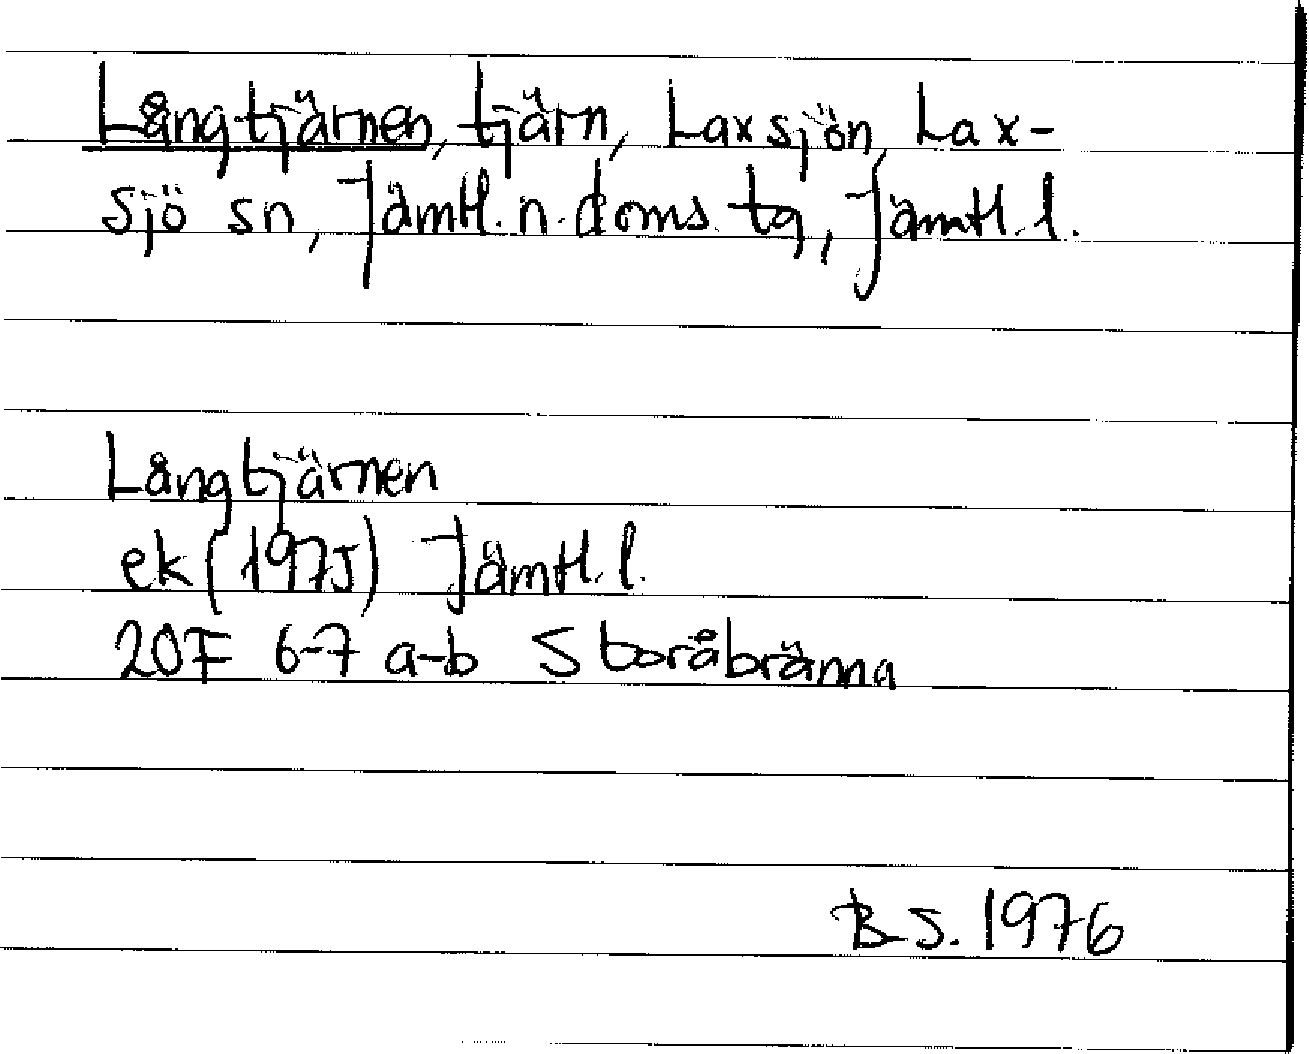 Långtjärnen, tjärn, Laxsjön, Lax-
sjö sn, Jämtl. n. doms. tg, Jämtl. l.
Långtjärnen
ek (1975) Jämtl. l.
20F 6-7 a-b Storåbränna
B S. 1976